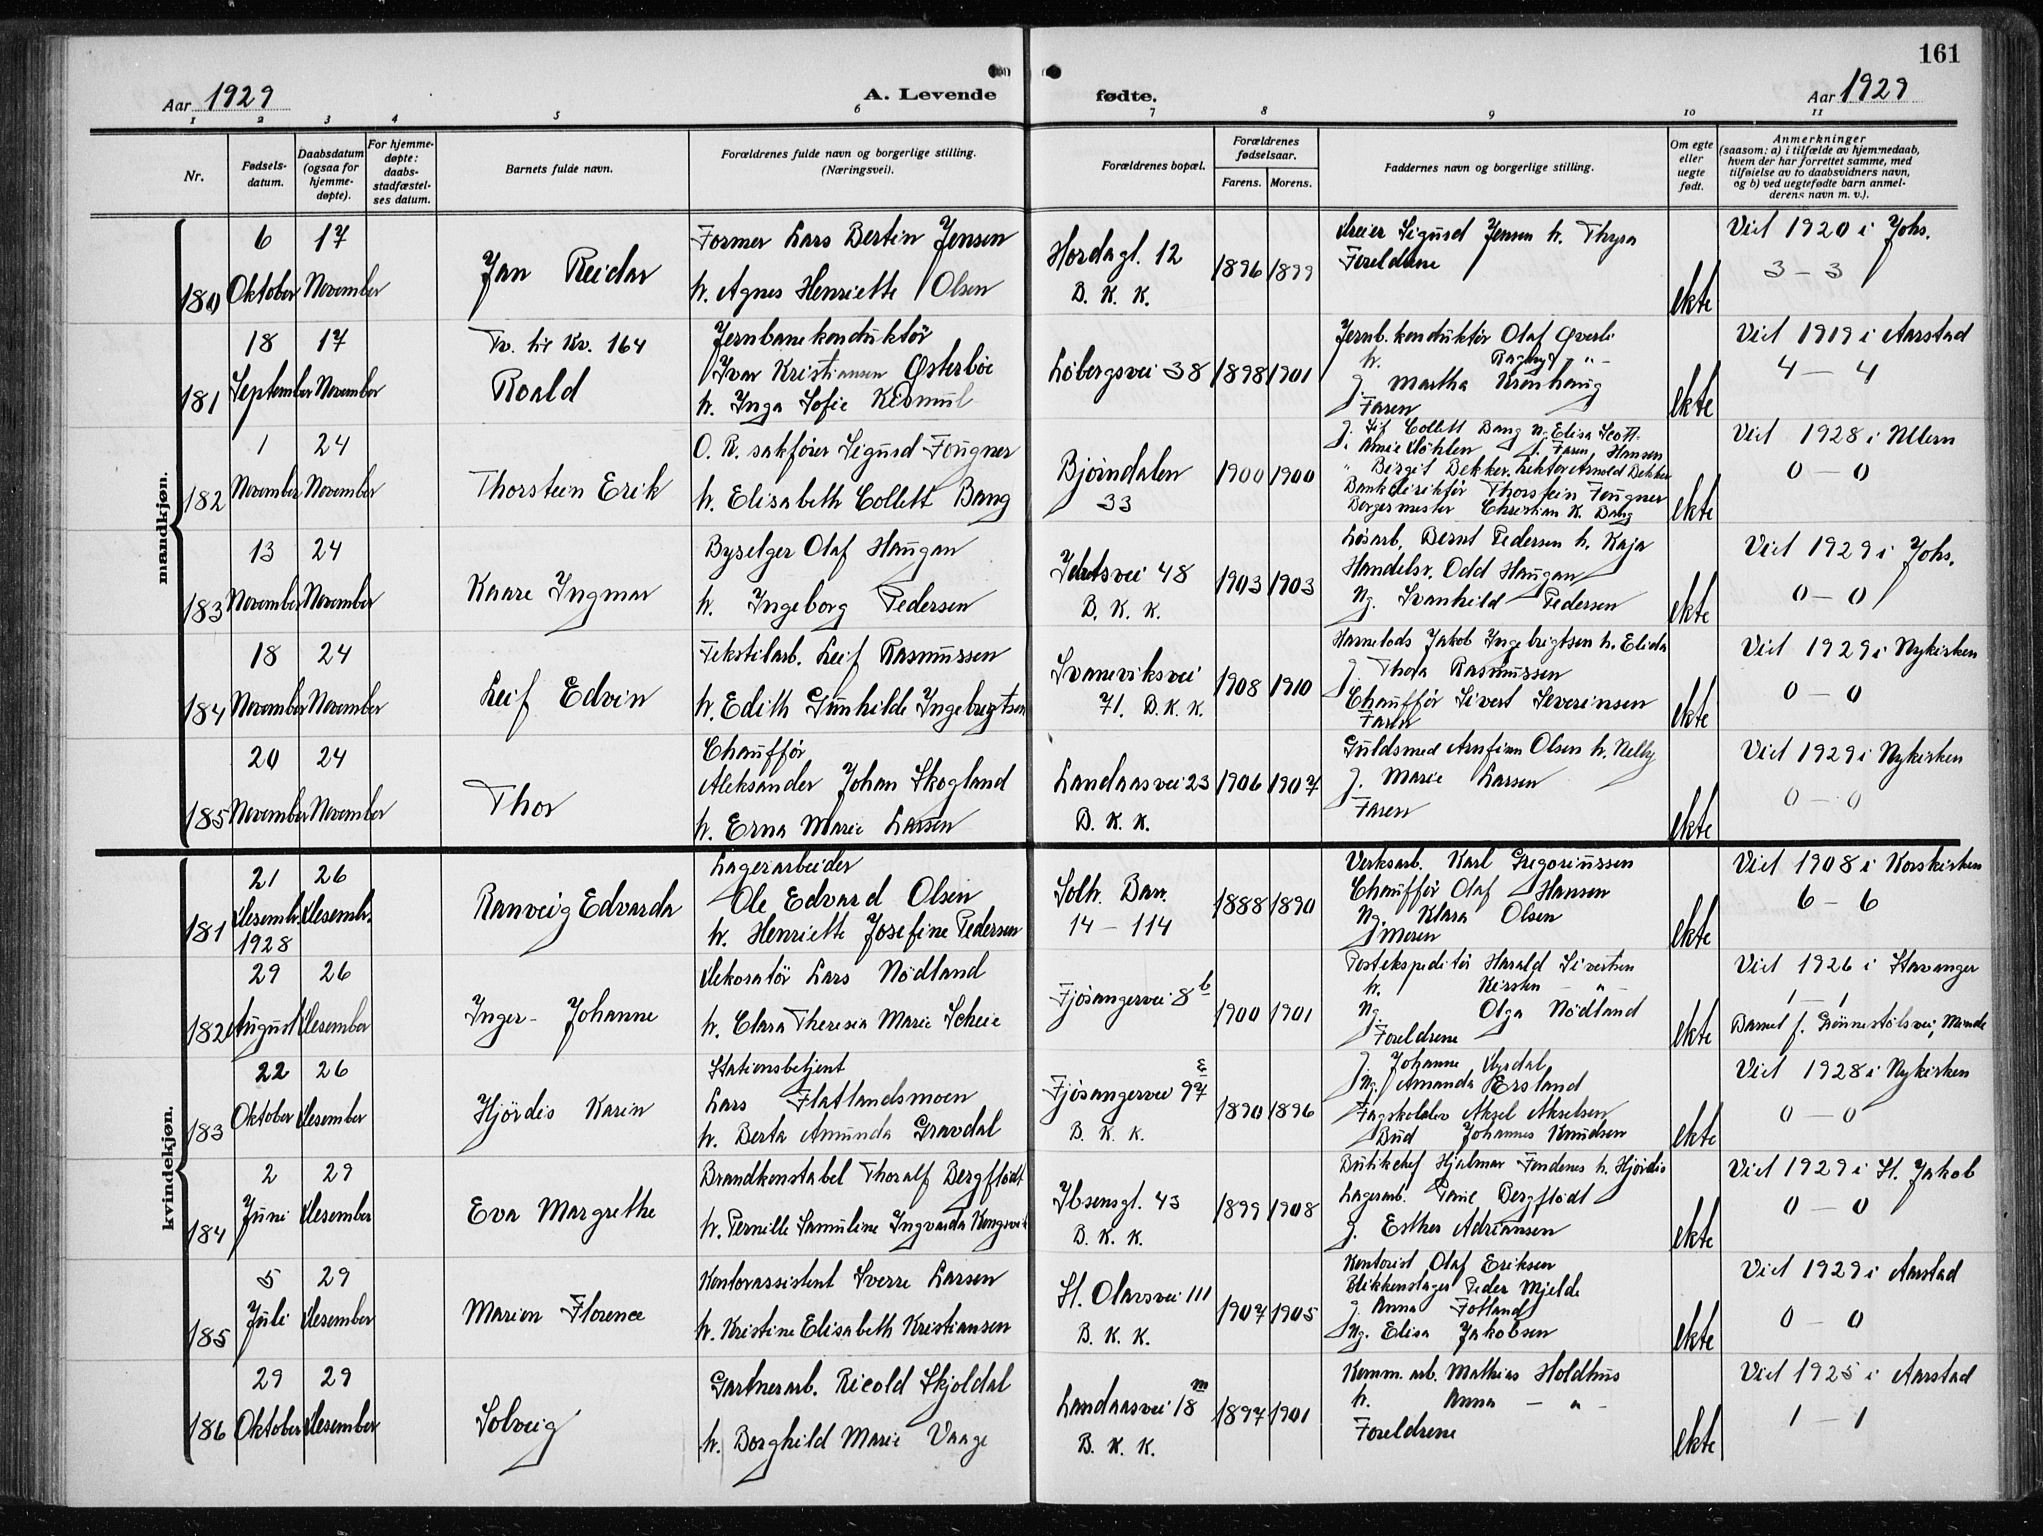 161
Aar 1929
A. Levende fødte.
Aar 1929
1 2 3 4 5 6 7 8 9 10 11
Nr.
Fødsels-
datum.
Daabsdatum
(ogsaa for
hjemme-
døpte).
For hjemme-
døpte:
daabs-
stadfæstel-
ses datum.
Barnets fulde navn.
Forældrenes fulde navn og borgerlige stilling.
(Næringsvei).
Forældrenes bopæl.
Forældrenes
fødselsaar.
Farens. Morens.
Faddernes navn og borgerlige stilling.
Om egte
eller
uegte
født.
Anmerkninger
(saasom: a) i tilfælde av hjemmedaab,
hvem der har forrettet samme, med
tilføielse av to daabsvidners navn,
og b) ved uegtefødte barn anmel-
derens navn m. v.).
mandkjøn.
180
6 Oktober
17 November
Jan Reidar
Former Lars Bertin Jensen
h. Agnes Henriette Olsen
Hordagt. 12
B. K. K.
1896 1899
Dreier Sigurd Jensen h. Thyra
Foreldrene
ekte
Viet 1920 i Johs.
3 – 3
181
18 September
17 November
Tv. til Kv. 164
Roald
Jernbanekonduktör
Ivar Kristiansen Österböe
h. Inga Sofie Kismul
Löbergsvei 38
1898 1901
Jernb.konduktör Olaf Överli
h. Ragna - " -
J. Martha Kronhaug
Faren
ekte
Viet 1919 i Aarstad
4 – 4
182
1 November
24 November
Thorstein Erik
O. R. sakförer Sigurd Fougner
h. Elisabeth Collett Bang
Björndalen
33
1900 1900
J. Sif Collett Bang N. Elisa Scott-Hansen
J. Faren
" Birgit Bekker. Lektor Arnold Bekker
Bankdirektör Thorstein Fougner
Borgermester Christian K. Bang
ekte
Viet 1928 i Ullern
0 – 0
183
13 November
24 November
Kaare Ingmar
Byselger Olaf Haugan
h. Ingeborg Pedersen
Idrætsvei 48
B. K. K.
1903 1903
Lösarb. Bernt Pedersen h. Kaja
Handelsr. Odd Haugan
Ng. Svanhild Pedersen
ekte
Viet 1929 i Johs.
0 – 0
184
18 November
24 November
Leif Edvin
Tekstilarb. Leif Rasmussen
h. Edith Gunhilde Ingebrigtsen
Svaneviksvei
71. B. K. K.
1908 1910
Havnelods Jakob Ingebrigtsen h. Elida
J. Thora Rasmussen
Chaufför Sivert Severinsen
Faren
ekte
Viet 1929 i Nykirken
0 – 0
185
20 November
24 November
Thor
Chaufför
Aleksander Johan Skogland
h. Erna Marie Larsen
Landaasvei 23
B. K. K.
1906 1907
Guldsmed Arnfinn Olsen h. Nelly
J. Marie Larsen
Faren
ekte
Viet 1929 i Nykirken
0 – 0
kvindekjøn.
181
21 Desembr. 1928
26 Desembr.
Ranveig Edvarda
Lagerarbeider
Ole Edvard Olsen
h. Henriette Josefine Pedersen
Solh. Bar.
14 – 114
1888 1890
Verksarb. Karl Gregoriussen
Chaufför Olaf Hansen
Ng. Klara Olsen
Moren
ekte
Viet 1908 i Korskirken
6 – 6
182
29 August
26 Desember
Inger-Johanne
Dekoratör Lars Nödland
h. Clara Theresia Marie Scheie
Fjösangervei 8 b
1900 1901
Postekspeditör Harald Sivertsen
h. Kirsten - " -
Ng. Olga Nödland
Foreldrene
ekte
Viet 1926 i Stavanger
1 – 1
Barnet f. Grönnestölsvei, Minde
183
22 Oktober
26 Desember
Hjördis Karin
Stationsbetjent
Lars Flatlandsmoen
h. Berta Amunda Gravdal
Fjösangervei 97 E
B. K. K.
1890 1896
J. Johanne Mysdal
Ng. Amanda Ersland
Fagskolelev Aksel Akselsen
Bud Johannes Knudsen
ekte
Viet 1928 i Nykirken
0 – 0
184
2 Juni
29 Desember
Eva Margrethe
Brandkonstabel Thoralf Bergflödt
h. Pernille Samuline Ingvarda Kongsvik
Ibsensgt. 43
B. K. K.
1899 1908
Butikchef Hjalmar Fondenes h. Hjördis
Lagerarb. Bergflödt
J. Esther Adriansen
ekte
Viet 1929 i St. Jakob
0 – 0
185
5 Juli
29 Desember
Marion Florence
Kontorassistent Sverre Larsen
h. Kristine Elisabeth Kristiansen
St. Olavsvei 111
B. K. K.
1907 1905
Kontorist Olaf Eriksen
Blikkenslager Peder Mjelde
J. Anna Fotland
Ng. Elisa Jakobsen
ekte
Viet 1929 i Aarstad
0 – 0
186
29 Oktober
29 Desember
Solveig
Gartnerarb. Ricold Skjoldal
h. Borghild Marie Vaage
Landaasvei 18 m
B. K. K.
1897 1901
Komm. arb. Mathias Holdhus
h. Anna - " -
Foreldrene
ekte
Viet 1925 i Aarstad
1 – 1